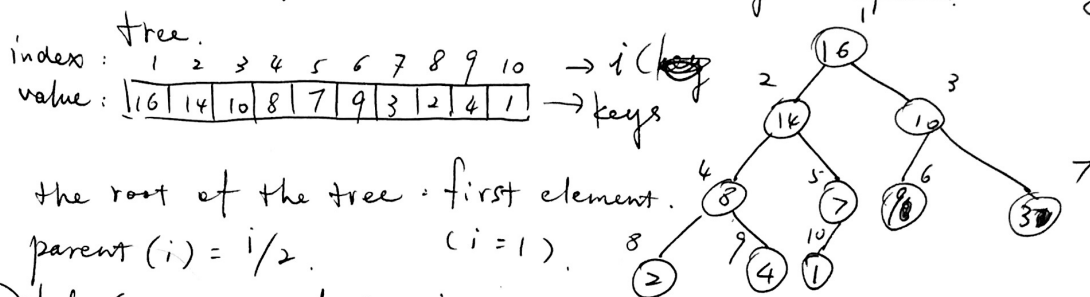 tree.
index : 1 2 3 4 5 6 7 8 9 10 → i
value : 16 14 10 8 7 9 3 2 4 1 → keys
the root of the tree : first element.
parent (i) = i/2. (i = 1).
1
16
2 3
14 10
4 5 6 7
8 7 9 3
8 9 10
2 4 1